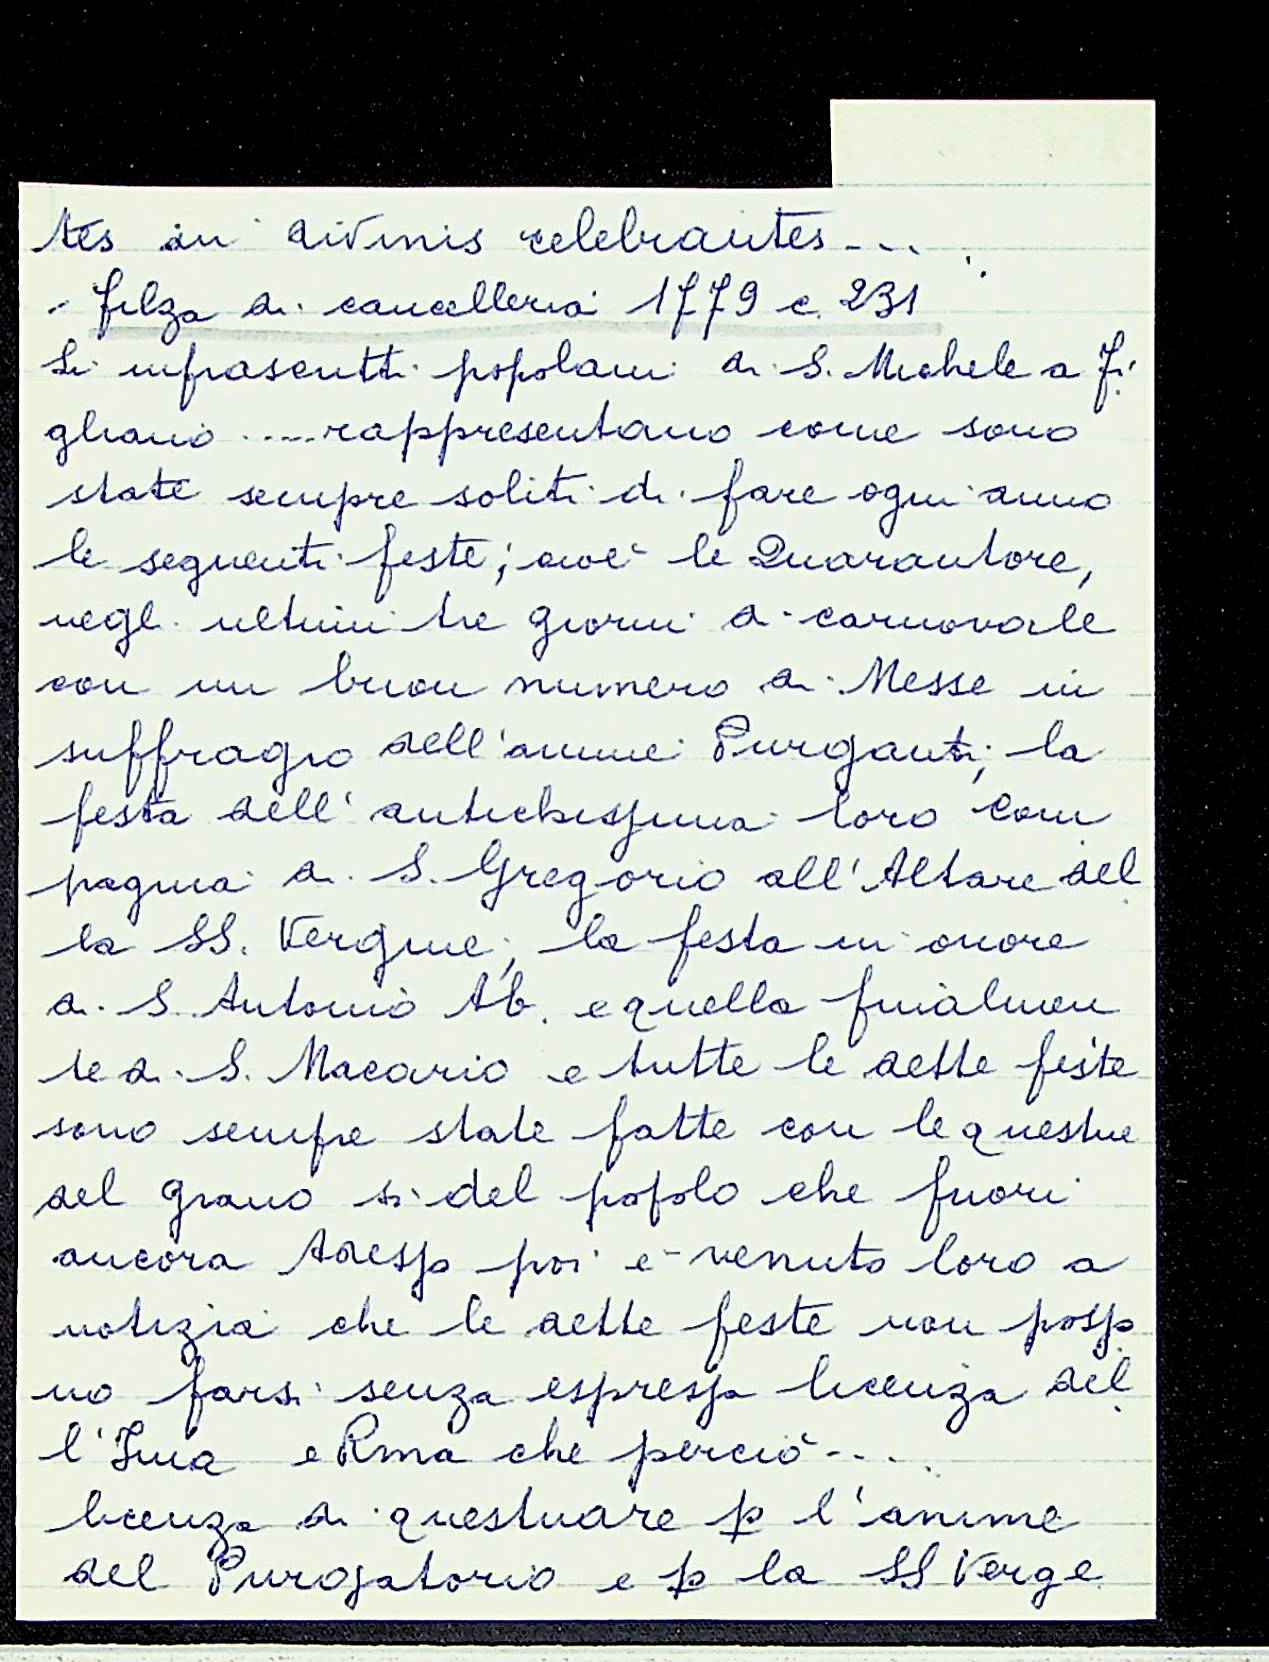 tes in divinis celebrantes - . .
- filza di cancelleria 1779 c. 231
Li infrascritti popolani di S. Michele a Fi
gliano ..... rappresentano come sono
state sempre soliti di fare ogni anno
le seguenti feste; cioè le Quarantore,
negl ultimi tre giorni di carnovale
con un buon numero di Messe in
suffragio dell'anime Purganti; la
festa dell' antichissima loro com
pagnia di S. Gregorio all'Altare del
la SS. Vergine; la festa in onore
di S. Antonio Ab. e quella finalmen
te di S. Macario e tutte le dette feste
sono sempre state fatte con le questue
del grano si del popolo che fuori
ancora Adesso poi è venuto loro a
notizia che le dette feste non posso
no farsi senza espressa licenza del
l'Ima e Rma che perciò - . . .
licenza di questuare p l'anime
del Purgatorio e p la SS Verge